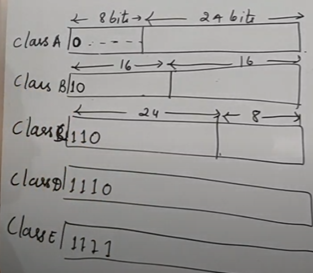 8bit 24 bits
Class A 0 - - - -
16 16
Class B 10
24 8
Class 110
Class D 1110
Class E 1111